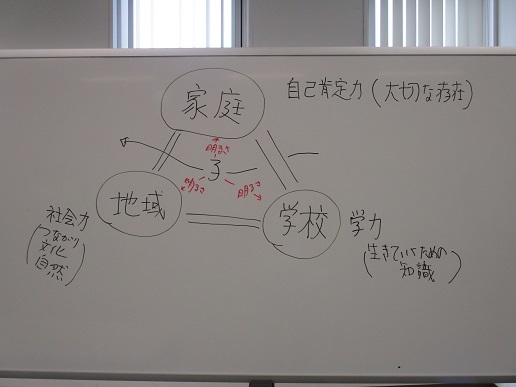 家庭
自己肯定力（大切な存在）
明るさ
子
明るさ
明るさ
地域
学校
社会力
（つながり
文化
自然）
学力
（生きていくための
知識）